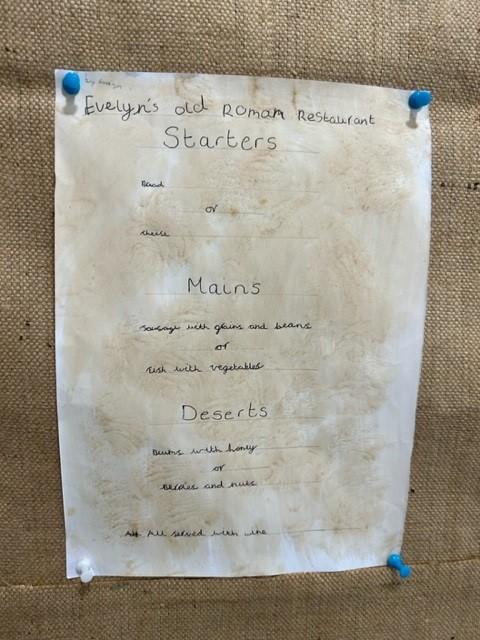 Evelyn's old Roman Restaurant
Starters
Bread
or
cheese
Mains
Sausage with grains and beans
or
Fish with vegetables
Deserts
with honey
or
Berries and nuts
All served with wine